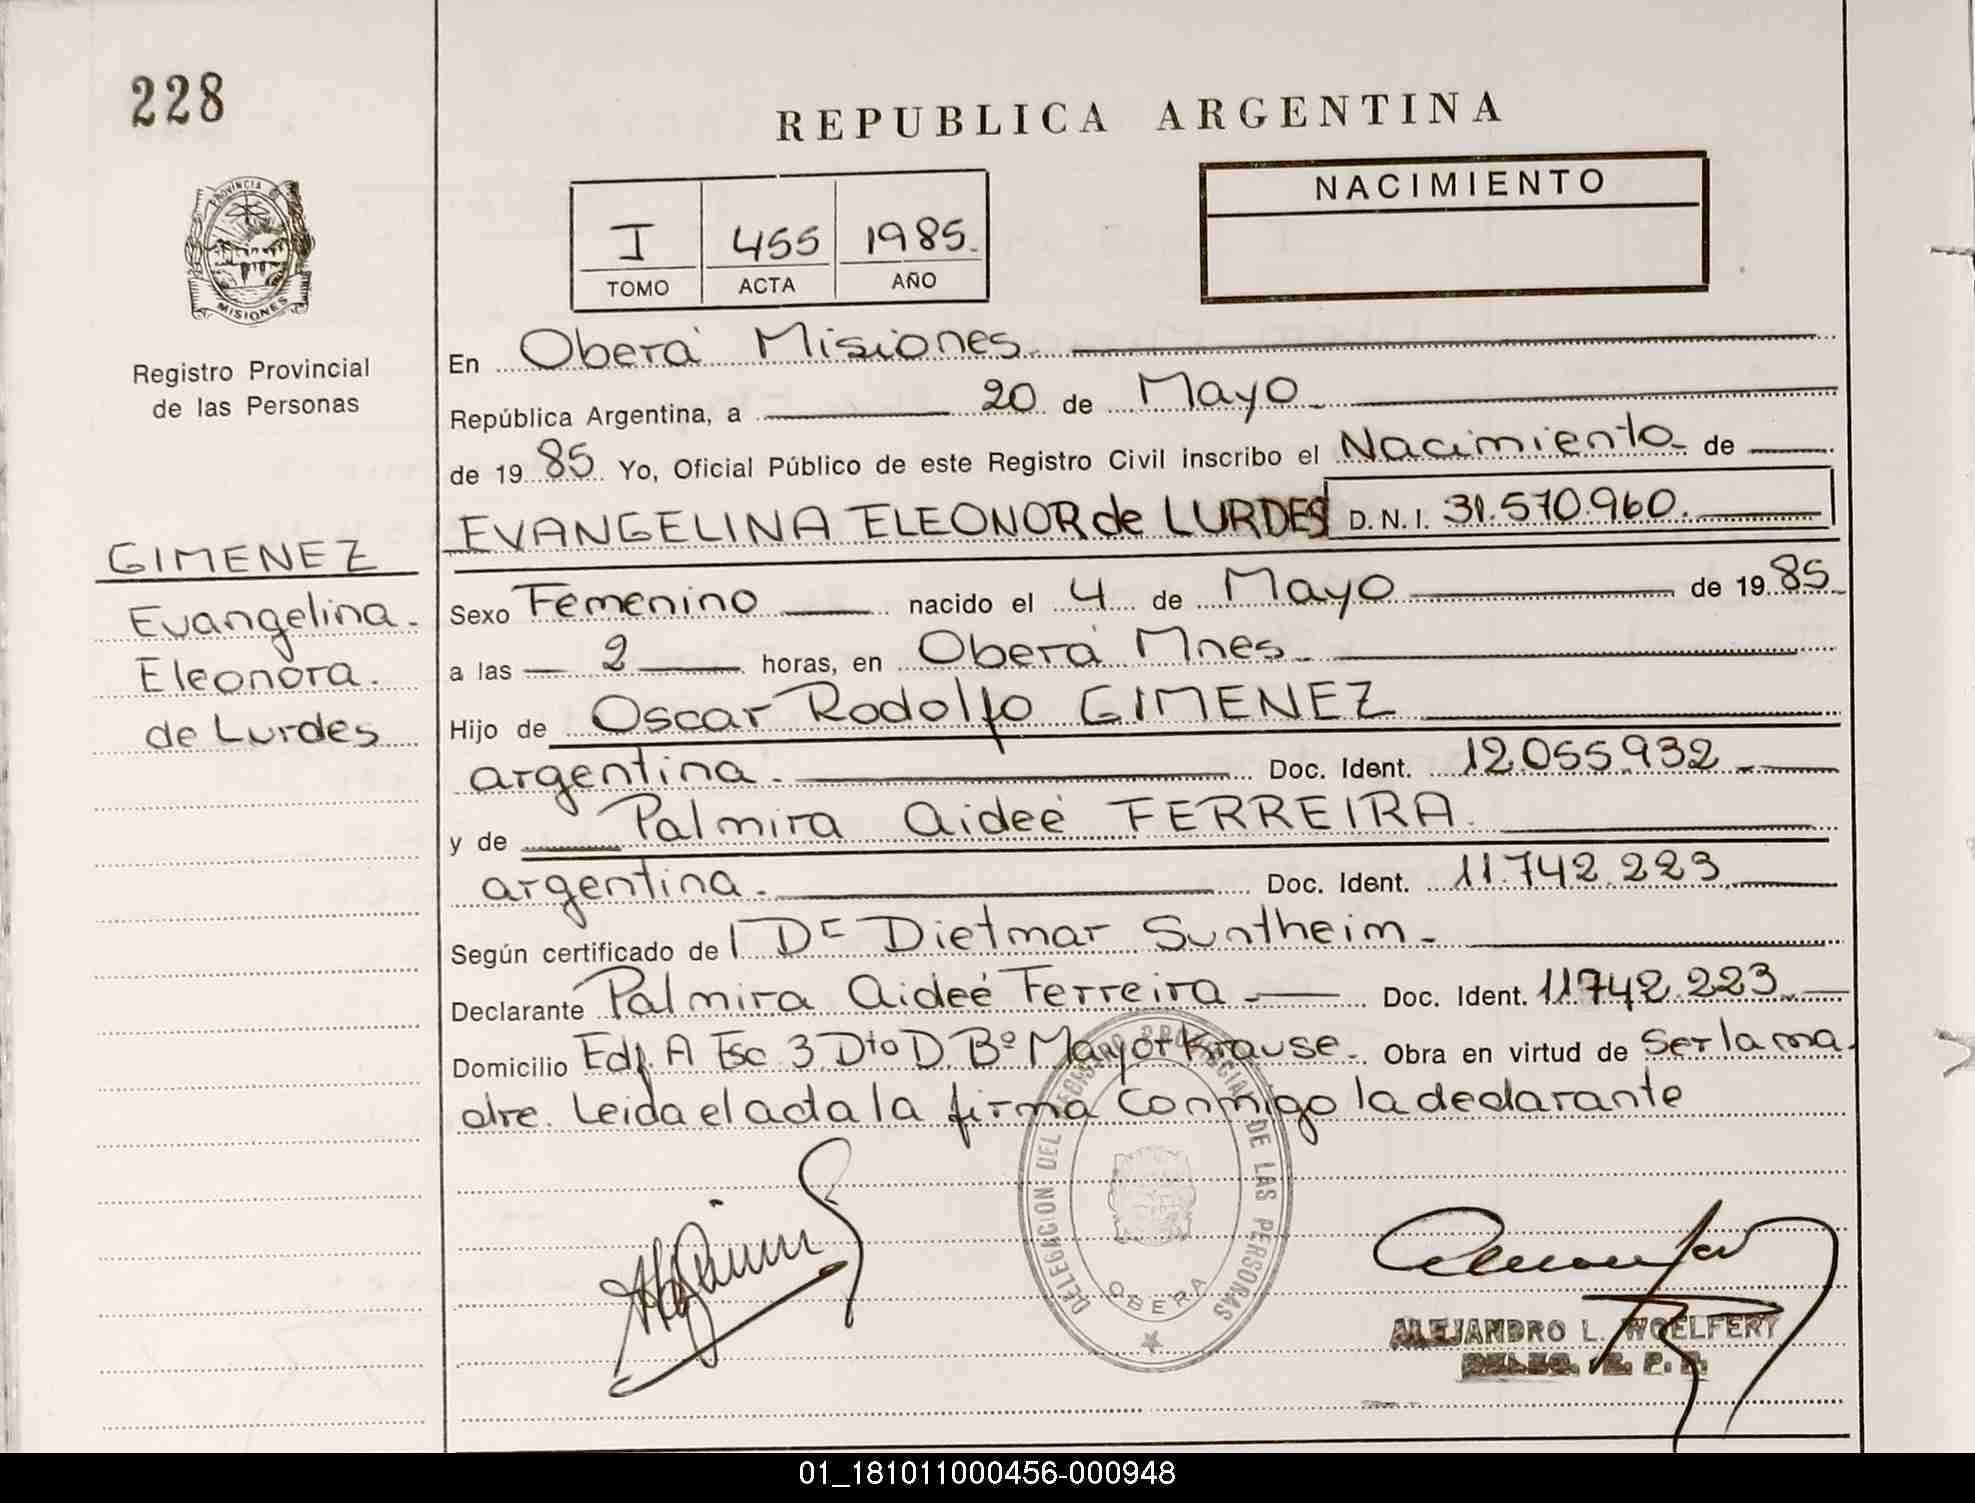 228
REPUBLICA ARGENTINA
NACIMIENTO
I 455 1985.
TOMO ACTA AÑO
PROVINCIA DE
MISIONES
Registro Provincial
de las Personas
GIMENEZ
Evangelina.
Eleonora.
de Lurdes
En Oberá Misiones.
República Argentina, a 20 de Mayo
de 1985. Yo, Oficial Público de este Registro Civil inscribo el Nacimiento de
EVANGELINA ELEONOR de LURDES D.N.I. 31.570.960.
Sexo Femenino nacido el 4 de Mayo de 1985.
a las 2 horas, en Oberá Mnes.
Hijo de Oscar Rodolfo GIMENEZ
argentina. Doc. Ident. 12.055.932
y de Palmira Aideé FERREIRA.
argentina. Doc. Ident. 11.742.223
Según certificado del Dr Dietmar Suntheim.
Declarante Palmira Aideé Ferreira Doc. Ident. 11742.223
Domicilio Edf. A Esc 3 Dto D. Bº Mayor Krause. Obra en virtud de Ser la ma
dre. Leida el acta la firma conmigo la declarante
DELEGACION DEL REGISTRO PROVINCIAL DE LAS PERSONAS
OBERA
ALEJANDRO L. WOELFERT
DELEG. R. P. P.
01_181011000456-000948